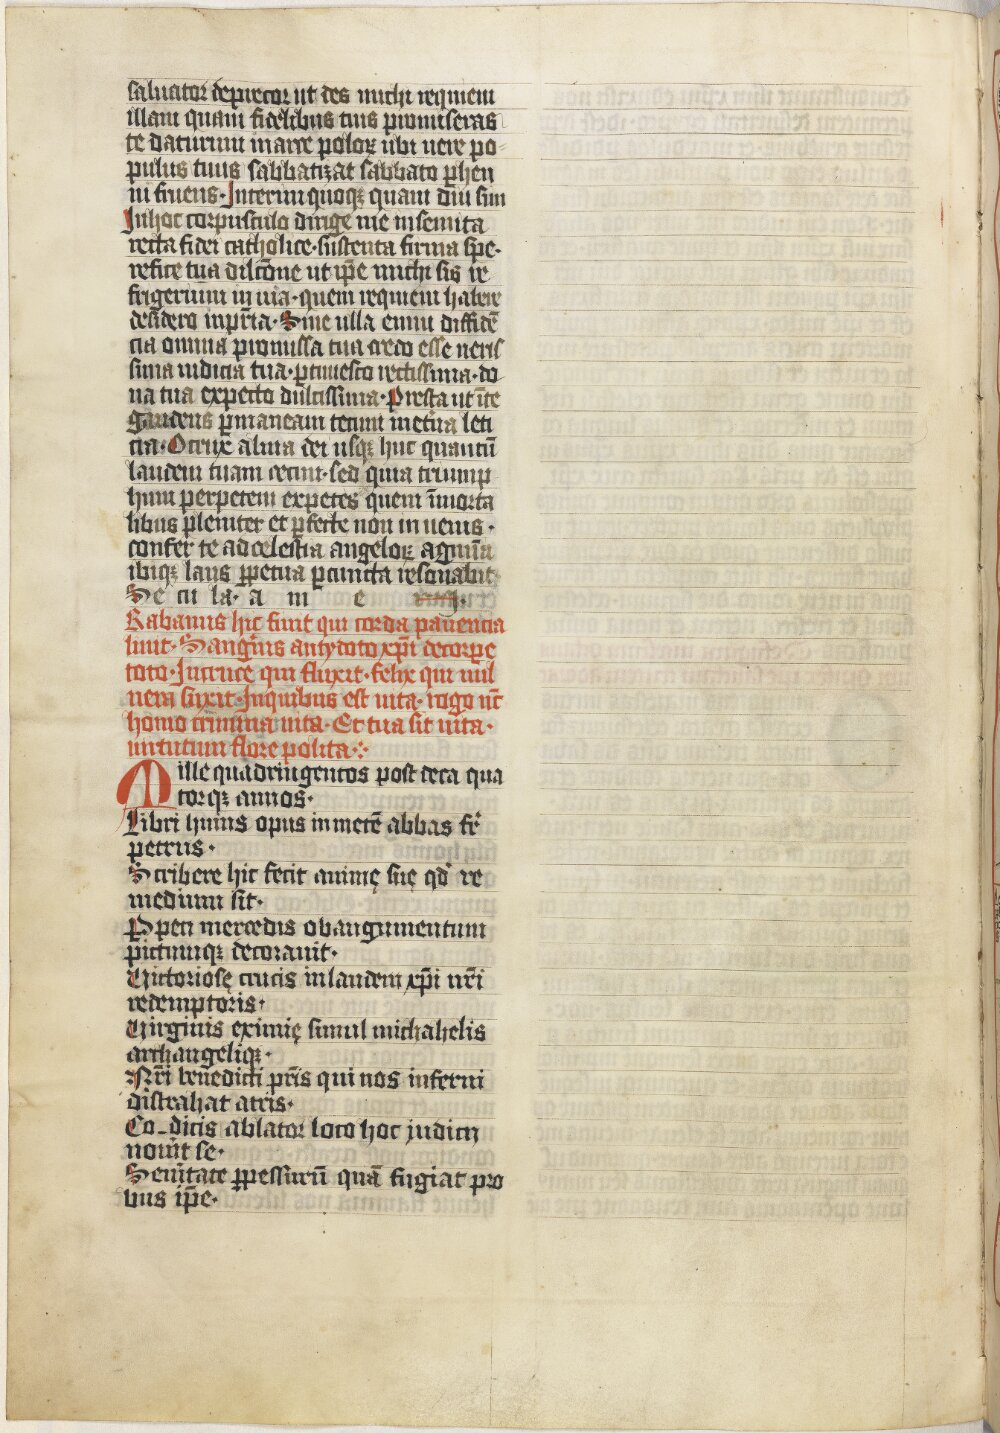 saluator deprecor ut des michi requiem
illam quam fidelibus tuis promiseras
te daturum in arce poloꝝ ubi uere po
pulus tuus sabbatizat sabbato ꝑhen
ni fruens· Interim quoqꝫ quam diu sum
In hoc corpusculo dirige me in semita
recta fidei catholice· sustenta firma spe·
refice tua dilc̄one ut ip̄e michi sis re
frigerium in uia· quem requiem habere
desidero in pr̄ia· Sine ulla enim diffidē
cia omnia promissa tua credo esse ueris
sima iudicia tua· ꝑtimesco rectissima· do
na tua expecto dulcissima· Presta ut ī te
gaudens ꝑmaneam tecum in et̄na leti
cia· O crux alma dei usqꝫ huc quantū
laudem tuam cecini· sed quia triump
hum perpetem expetes quem īmorta
libus pleniter et ꝑfecte non in uenis·
confer te ad celestia angeloꝝ agmīa
ibiqꝫ laus ꝑpetua ꝑ cuncta resonabit
Se cu la· a m e
Rabanus hic fuit qui corda pauencia
luit· Sangīs antydoto xp̄i decorꝑe
toto· In cruce qui fluxit· felix qui uul
nera suxit· In quibus est uita· rogo nc̄
homo crimina uita· Et tua sit uita·
uirtutum flore polita·:
Mille quadringentos post deca qua
torqꝫ annos·
Libri huius opus in metē abbas fr̄
petrus·
Scribere hic fecit animę suę qd̄ re
medium sit·
Speti mercedis ob augumentum
pictumqꝫ decorauit·
Victoriosę crucis in laudem xp̄i nr̄i
redemptoris·
Virginis eximię simul michahelis
archangeliqꝫ·
Nr̄i benedicti pr̄is qui nos inferni
distrahat atris·
Co-dicis ablator loco hoc judicij
nouīt se·
Seuītate ꝑpessurū quā fugiat pro
bus ip̄e·